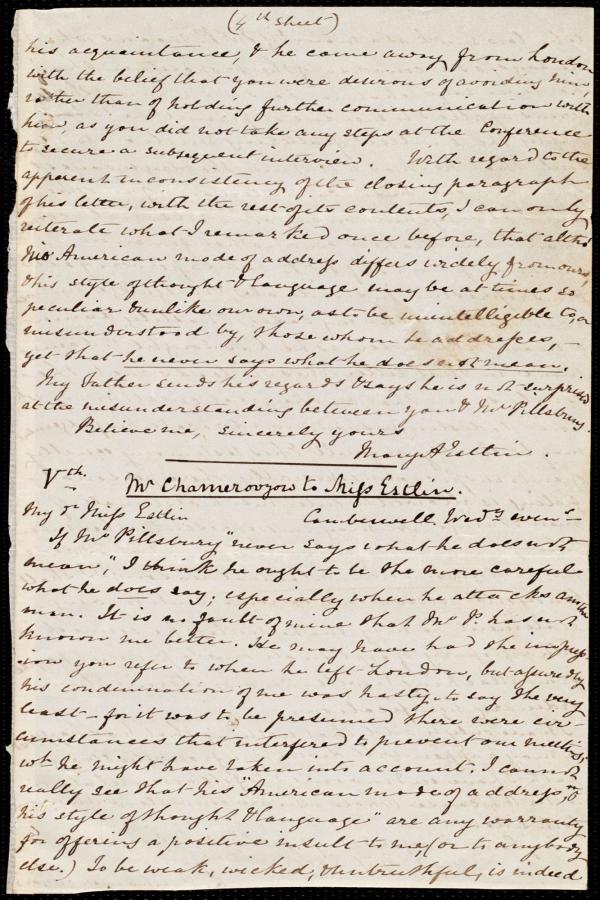 (4th sheet)
his acquaintance, & he came away from London
with the belief that you were desirous of avoiding him,
rather than of holding further communication with
him, as you did not take any steps at the Conference
to secure a subsequent interview. With regard to the
apparent inconsistency of the closing paragraph
of his letter, with the rest of its contents, I can only
reiterate what I remarked once before, that altho'
the American mode of address differs widely from ours,
& his style of thought & language may be at times so
peculiar & unlike our own, as to be unintelligible to, or
misunderstood by, those whom he addresses, —
yet that he never says what he does not mean.
My Father sends his regards & says he is not surprised
at the misunderstanding between you & Mr Pillsbury.
Believe me, sincerely yours
Mary A Estlin.
Vth.
Mr Chamerovzow to Miss Estlin.
My dr Miss Estlin Camberwell, Wedy even-
If Mr Pillsbury "never says what he does not
mean", I think he ought to be the more careful
what he does say; especially when he attacks another
man. It is no fault of mine that Mr P. has not
known me better. He may have had the impress-
ion you refer to when he left London, but assuredly
his condemnation of me was hasty, to say the very
least - for it was to be presumed there were cir-
cumstances that interfered to prevent our meeting;
wh. he might have taken into account. I cannot
really see that his "American mode of address, or
his style of thought & language" are any warranty
for offering a positive insult to me, (or to anybody
else.) To be weak, wicked, & untruthful, is indeed